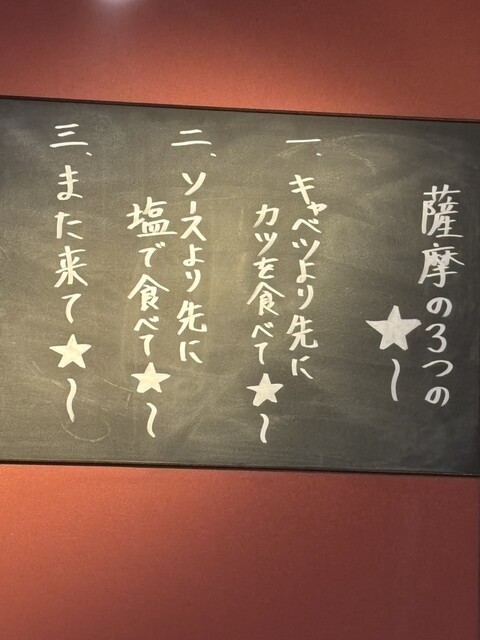 薩摩の3つの
★〜
一、キャベツより先に
カツを食べて★〜
二、ソースより先に
塩で食べて★〜
三、また来て★〜